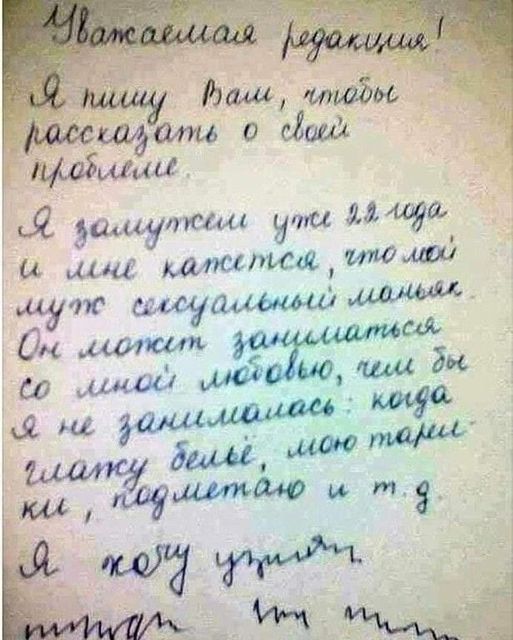 Уважаемая редакция!
Я пишу Вам, чтобы
рассказать о своей
проблеме.
Я замужем уже 22 года
и мне кажется, что мой
муж сексуальный маньяк.
Он может заниматься
со мной любовью, чем бы
я не занималась: когда
глажу бельё, мою тарел-
ки, подметаю и т.д.
Я хочу узнать